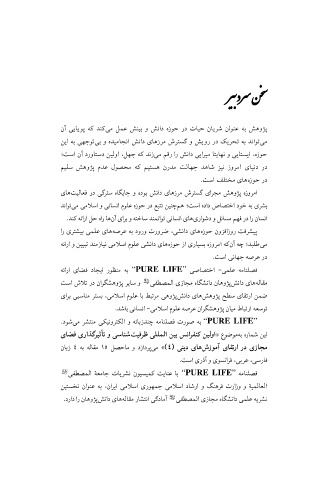 سخن سردبیر
پژوهش به عنوان شریان حیات در حوزه دانش و بینش عمل می‌کند که پویایی آن
می‌تواند به تحریک در رویش و گسترش مرزهای دانش انجامیده و بی‌توجهی به این
حوزه، ایستایی و نهایتا میرایی دانش را رقم می‌زند که جهل، اولین دستاورد آن است؛
در دنیای امروز نیز شاهد جهالت مدرن هستیم که محصول عدم پژوهش سلیم
در حوزه‌های مختلف است.
امروزه پژوهش مجرای گسترش مرزهای دانش بوده و جایگاه سترگی در فعالیت‌های
بشری به خود اختصاص داده است؛ هم‌چنین تتبع در حوزه علوم انسانی و اسلامی می‌تواند
انسان را در فهم مسائل و دشواری‌های انسانی توانمند ساخته و برای آن‌ها راه حل ارائه کند.
پیشرفت روزافزون حوزه‌های دانشی، ضرورت ورود به عرصه‌های علمی بیشتری را
می‌طلبد؛ چه آن‌که امروزه بسیاری از حوزه‌های دانشی علوم اسلامی نیازمند تبیین و ارائه
در عرصه جهانی است.
فصلنامه علمی- اختصاصی "PURE LIFE" به منظور ایجاد فضای ارائه
مقاله‌های دانش‌پژوهان دانشگاه مجازی المصطفی و سایر پژوهشگران در تلاش است
ضمن ارتقای سطح پژوهش‌های دانش‌پژوهی مرتبط با علوم اسلامی، بستر مناسبی برای
توسعه ارتباط میان پژوهشگران عرصه علوم اسلامی- انسانی باشد.
"PURE LIFE" به صورت فصلنامه چندزبانه و الکترونیکی منتشر می‌شود.
این شماره به‌موضوع «اولین کنفرانس بین المللی ظرفیت‌شناسی و تأثیرگذاری فضای
مجازی در ارتقای آموزش‌های دینی (٤)» می‌پردازد و ماحصل ١٥ مقاله به ٤ زبان
فارسی، عربی، فرانسوی و آذری است.
فصلنامه "PURE LIFE" با عنایت کمیسیون نشریات جامعة المصطفی
العالمیة و وزارت فرهنگ و ارشاد اسلامی جمهوری اسلامی ایران، به عنوان نخستین
نشریه علمی دانشگاه مجازی المصطفی آمادگی انتشار مقاله‌های دانش‌پژوهان را دارد.